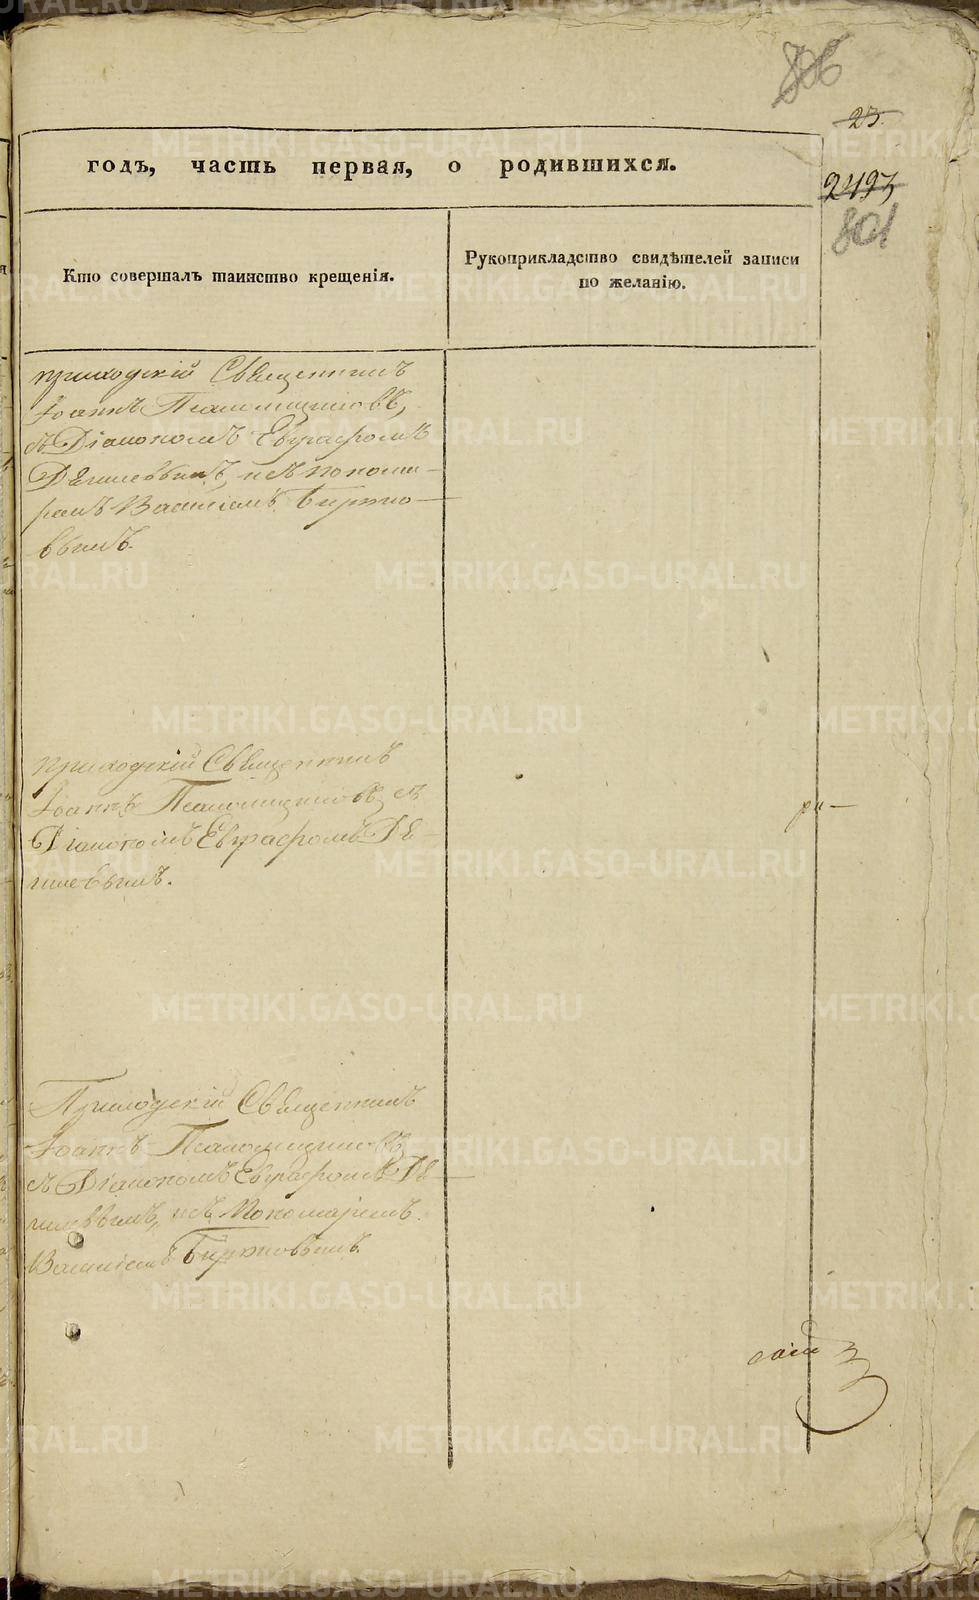 806
23.
годъ, часть первая, о родившихся.
2493
801
Кто совершалъ таинство крещенія.
Рукоприкладство свидѣтелей записи
по желанію.
приходскій Священникъ
Іоаннъ Псаломщиковъ,
съ Діакономъ Евграфомъ
нсъ понома-
ремъ Василіемъ
вымъ.
приходскій Священникъ
Іоаннъ Псаломщиковъ съ
Діакономъ Евграфомъ
ри-
Приходскій Священникъ
Іоаннъ Псаломщиковъ,
съ Діакономъ Евграфомъ
нсъ Пономаремъ
Василіемъ
METRIKI.GASO-URAL.RU